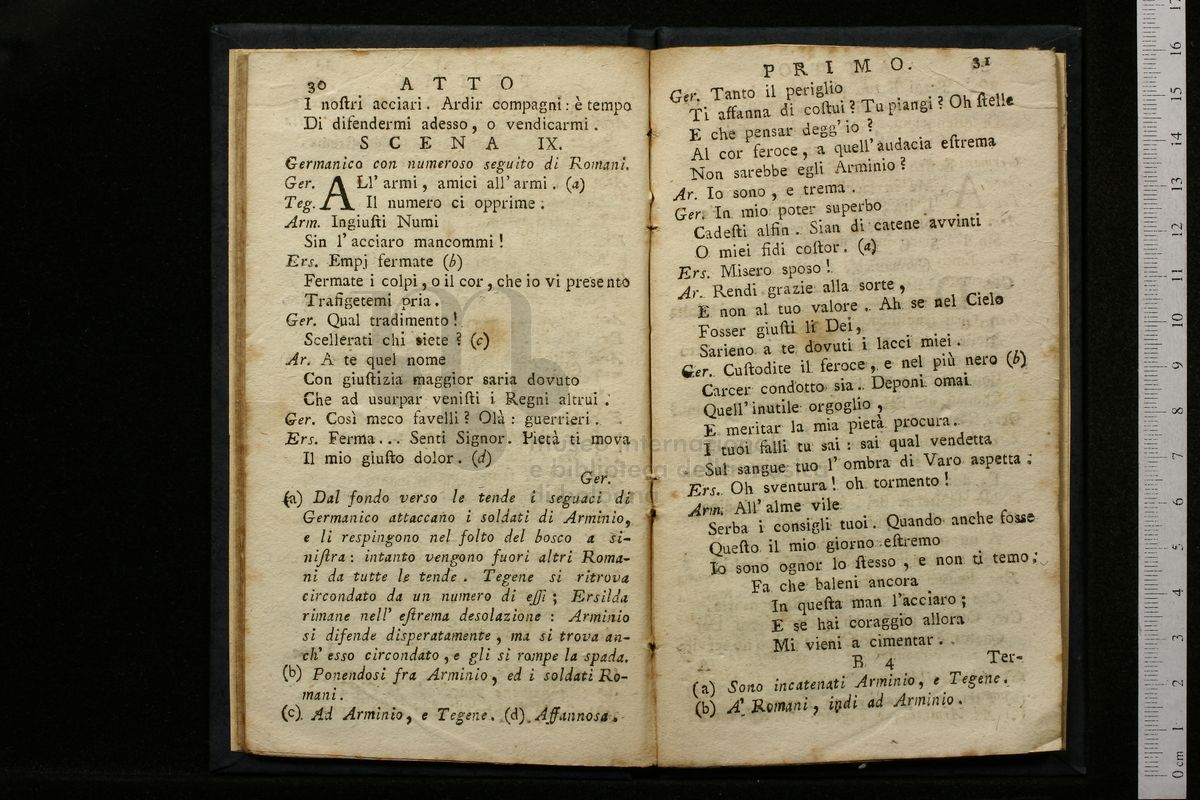 30 ATTO
I noſtri acciari. Ardir compagni: è tempo
Di difendermi adesso, o vendicarmi.
SCENA IX.
Germanico con numeroso seguito di Romani.
Ger. ALl' armi, amici all' armi. (a)
Teg. Il numero ci opprime.
Arm. Ingiuſti Numi
Sin l' acciaro mancommi!
Ers. Empj fermate (b)
Fermate i colpi, o il cor, che io vi presento
Trafigetemi pria.
Ger. Qual tradimento!
Scellerati chi siete? (c)
Ar. A te quel nome
Con giuſtizia maggior saria dovuto
Che ad usurpar veniſti i Regni altrui.
Ger. Così meco favelli? Olà: guerrieri.
Ers. Ferma... Senti Signor. Pietà ti mova
Il mio giuſto dolor. (d)
Ger.
(a) Dal fondo verso le tende i seguaci di
Germanico attaccano i soldati di Arminio,
e li respingono nel folto del bosco a si-
niſtra: intanto vengono fuori altri Roma-
ni da tutte le tende. Tegene si ritrova
circondato da un numero di eſſi; Ersilda
rimane nell' eſtrema desolazione: Arminio
si difende disperatamente, ma si trova an-
ch' esso circondato, e gli si rompe la spada.
(b) Ponendosi fra Arminio, ed i soldati Ro-
mani.
(c) Ad Arminio, e Tegene. (d) Affannosa.
PRIMO. 31
Ger. Tanto il periglio
Ti affanna di coſtui? Tu piangi? Oh ſtelle
E che pensar degg' io?
Al cor feroce, a quell' audacia eſtrema
Non sarebbe egli Arminio?
Ar. Io sono, e trema.
Ger. In mio poter superbo
Cadeſti alfin. Sian di catene avvinti
O miei fidi coſtor. (a)
Ers. Misero sposo!
Ar. Rendi grazie alla sorte,
E non al tuo valore. Ah se nel Cielo
Fosser giuſti li Dei,
Sarieno a te dovuti i lacci miei.
Ger. Cuſtodite il feroce, e nel più nero (b)
Carcer condotto sia. Deponi omai
Quell' inutile orgoglio,
E meritar la mia pietà procura.
I tuoi falli tu sai: sai qual vendetta
Sul sangue tuo l' ombra di Varo aspetta;
Ers. Oh sventura! oh tormento!
Arm. All' alme vile
Serba i consigli tuoi. Quando anche fosse
Queſto il mio giorno eſtremo
Io sono ognor lo ſtesso, e non ti temo;
Fa che baleni ancora
In queſta man l'acciaro;
E se hai coraggio allora
Mi vieni a cimentar.
B 4 Ter-
(a) Sono incatenati Arminio, e Tegene.
(b) A' Romani, indi ad Arminio.
0 cm 1 2 3 4 5 6 7 8 9 10 11 12 13 14 15 16 17